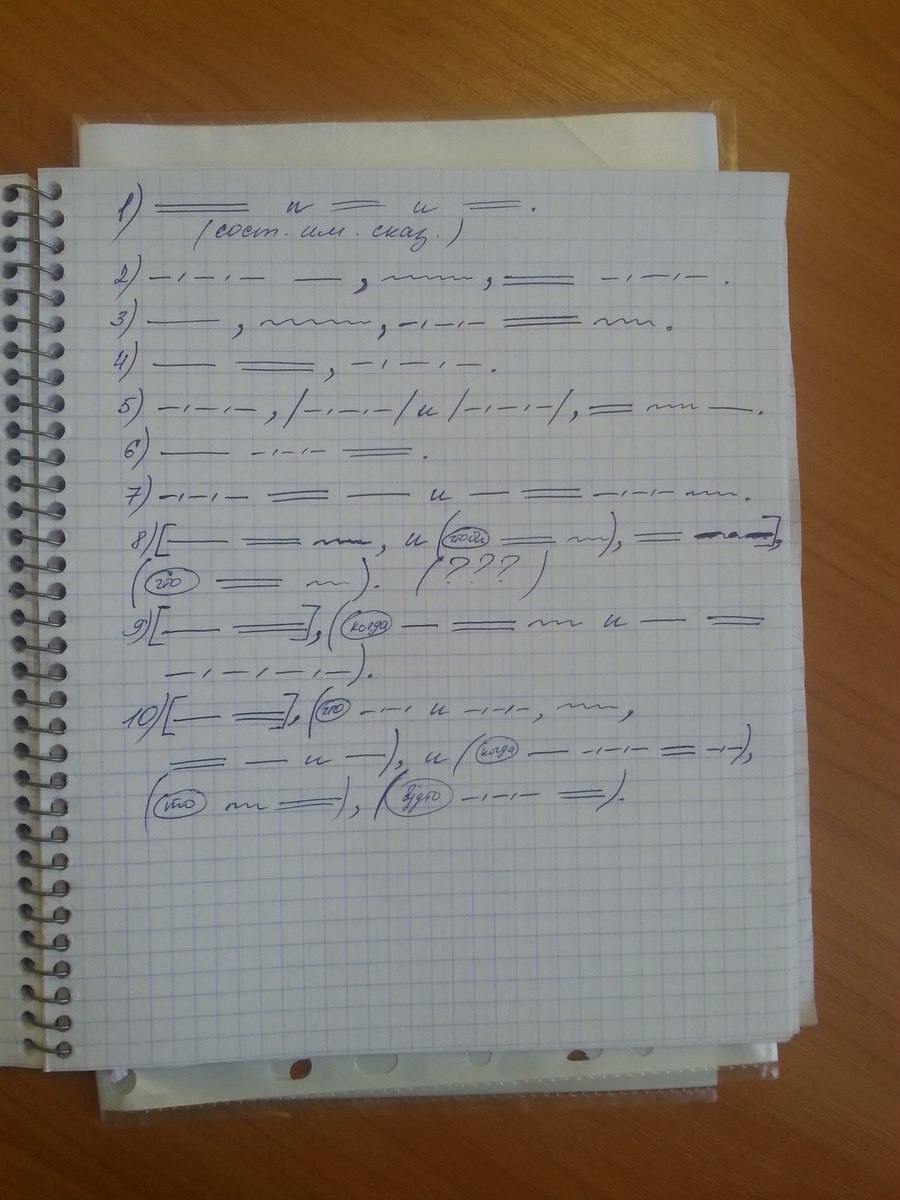 1) и и .
(сост. им. сказ.)
2) , , .
3) , , .
4) , .
5) , / / и / /, .
6) .
7) и .
8) [ , и ( ), ],
(что ). (???)
9) [ ], (когда и
).
10) [ ], (что и , ,
и ), и (когда ),
(что ), (будто ).